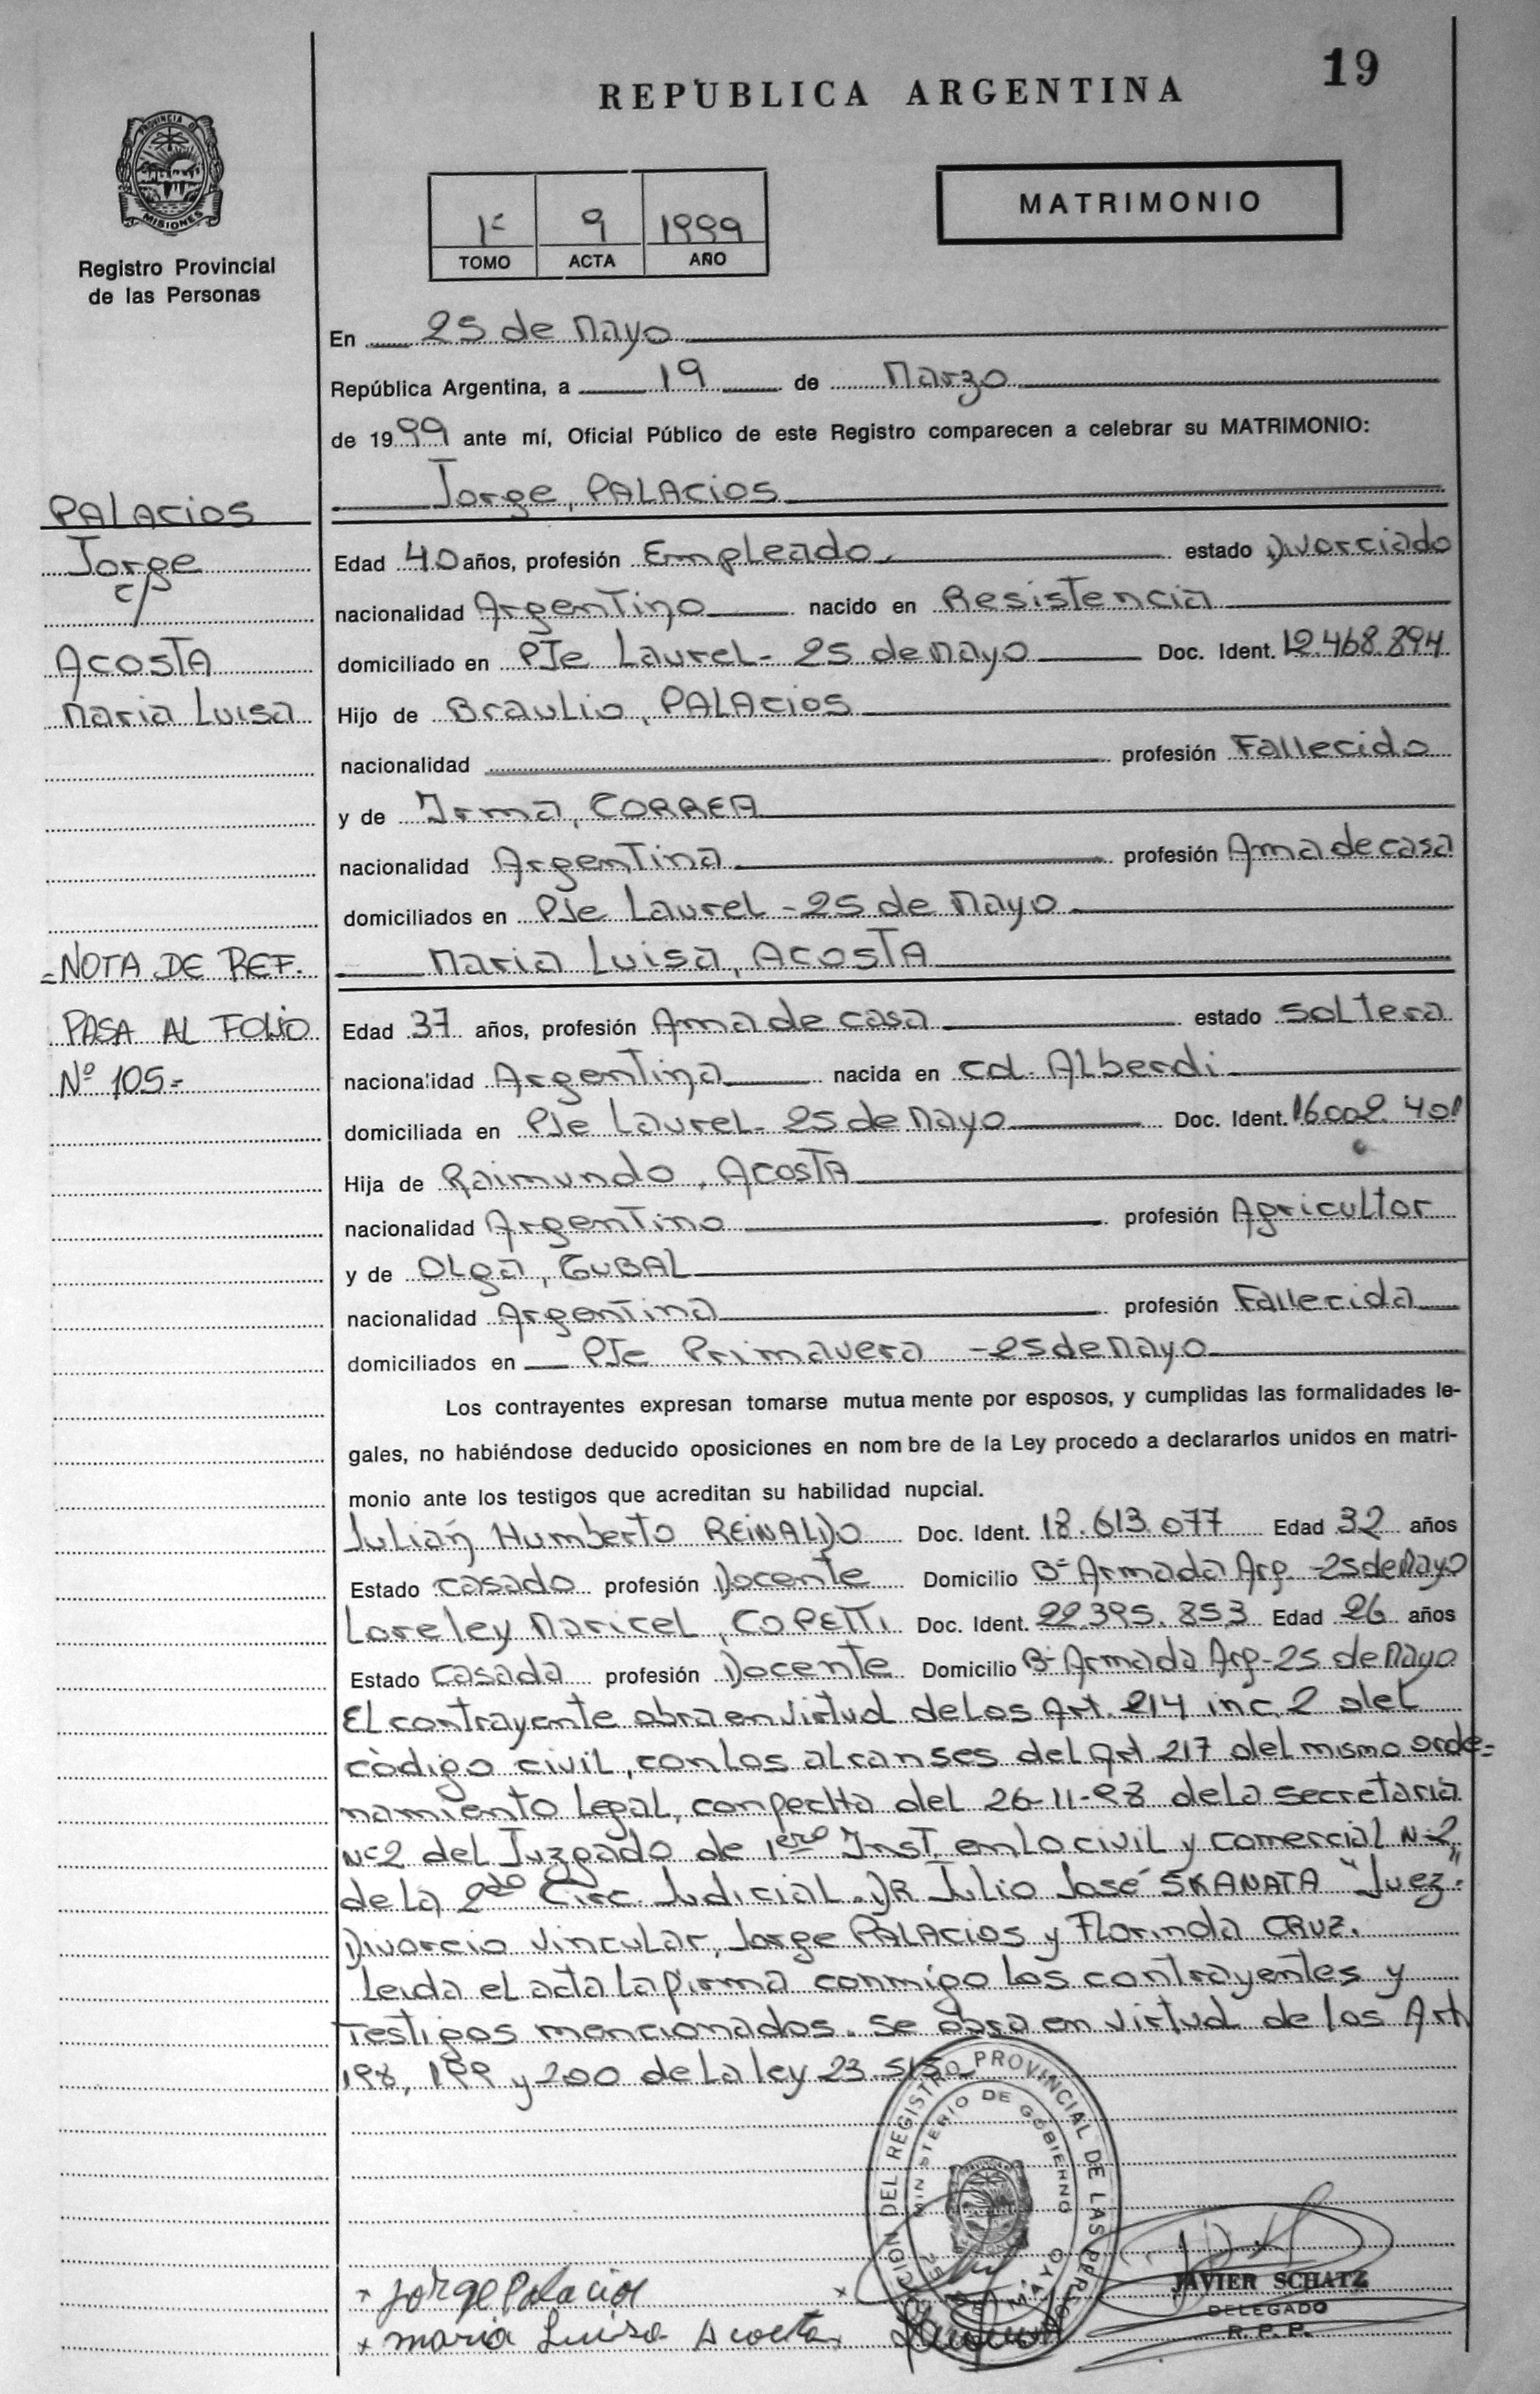 19
REPUBLICA ARGENTINA
PROVINCIA D
MISIONES
Registro Provincial
de las Personas
MATRIMONIO
1º 9 1999
TOMO ACTA AÑO
En 25 de Mayo
República Argentina, a 19 de Marzo
de 1999 ante mí, Oficial Público de este Registro comparecen a celebrar su MATRIMONIO:
Jorge, PALACIOS
PALACIOS
Jorge
c/
ACOSTA
Maria Luisa
Edad 40 años, profesión Empleado, estado Divorciado
nacionalidad Argentino nacido en Resistencia
domiciliado en PJe Laurel - 25 de Mayo Doc. Ident. 12.468.894
Hijo de Braulio, PALACIOS
nacionalidad profesión Fallecido
y de Irma, CORREA
nacionalidad Argentina profesión Ama de casa
domiciliados en PJe Laurel - 25 de Mayo
Maria Luisa, ACOSTA
= NOTA DE REF.
PASA AL FOLIO
Nº 105 =
Edad 37 años, profesión Ama de casa estado Soltera
nacionalidad Argentina nacida en Cd. Alberdi
domiciliada en PJe Laurel - 25 de Mayo Doc. Ident. 16.002.401
Hija de Raimundo, ACOSTA
nacionalidad Argentino profesión Agricultor
y de Olga, CUBAL
nacionalidad Argentina profesión Fallecida
domiciliados en PJe Primavera - 25 de Mayo
Los contrayentes expresan tomarse mutua mente por esposos, y cumplidas las formalidades le-
gales, no habiéndose deducido oposiciones en nom bre de la Ley procedo a declararlos unidos en matri-
monio ante los testigos que acreditan su habilidad nupcial.
Julián Humberto REINALDO Doc. Ident. 18.613.077 Edad 32 años
Estado casado profesión Docente Domicilio Bº Armada Arg. - 25 de Mayo
Loreley Maricel, COPETTI Doc. Ident. 22.395.853 Edad 26 años
Estado casada profesión Docente Domicilio Bº Armada Arg - 25 de Mayo
El contrayente obra en virtud de los Art. 214 inc. 2 del
còdigo civil, con los alcanses del Art 217 del mismo orde=
namiento legal, con fecha del 26-11-98 de la secretaria
Nº2 del Juzgado de 1ero Inst. en lo civil y comercial Nº2
de la 2do Circ. Judicial. DR Julio José SKANATA "Juez"
Divorcio Vincular, Jorge PALACIOS y Florinda CRUZ.
Leida el acta la firma conmigo los contrayentes y
testigos mencionados. se obra en virtud de los Art
198, 199 y 200 de la ley 23.515
CION DEL REGISTRO PROVINCIAL DE LAS PERSO
MINISTERIO DE GOBIERNO
25 DE MAYO
+ Jorge Palacios
+ maria Luisa Acosta
JAVIER SCHATZ
DELEGADO
R. P. P.